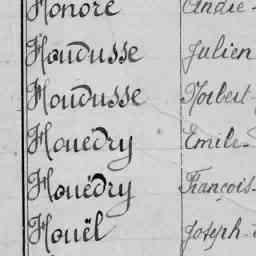 Honoré André
Houdusse Julien
Houdusse Norbert
Houédry Emile
Houédry François
Houël Joseph